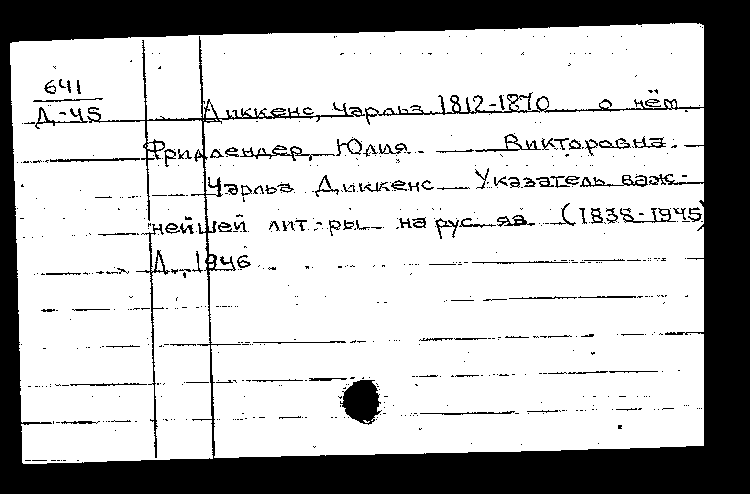 641
Д-45
Диккенс, Чарльз 1812-1870 о нём
Фридлендер, Юлия Викторовна.
Чарльз Диккенс Указатель важ-
нейшей лит-ры на рус. яз. (1838-1945)
Л., 1946